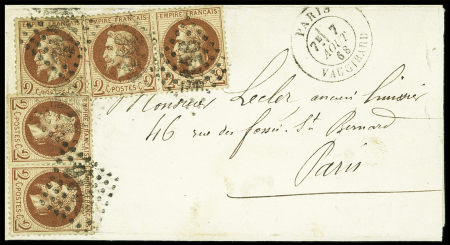 EMPIRE FRANÇAIS EMPIRE FRANÇAIS EMPIRE FRANÇAIS
2 C. POSTES 2 2 C. POSTES 2 2 C. POSTES 2
EMPIRE FRANÇAIS
2 C. POSTES 2
EMPIRE FRANÇAIS
2 C. POSTES 2
PARIS
7E
7
AOUT
68
VAUGIRARD
Monsieur Lecler ancien huissier
46 rue des fossés St Bernard
Paris